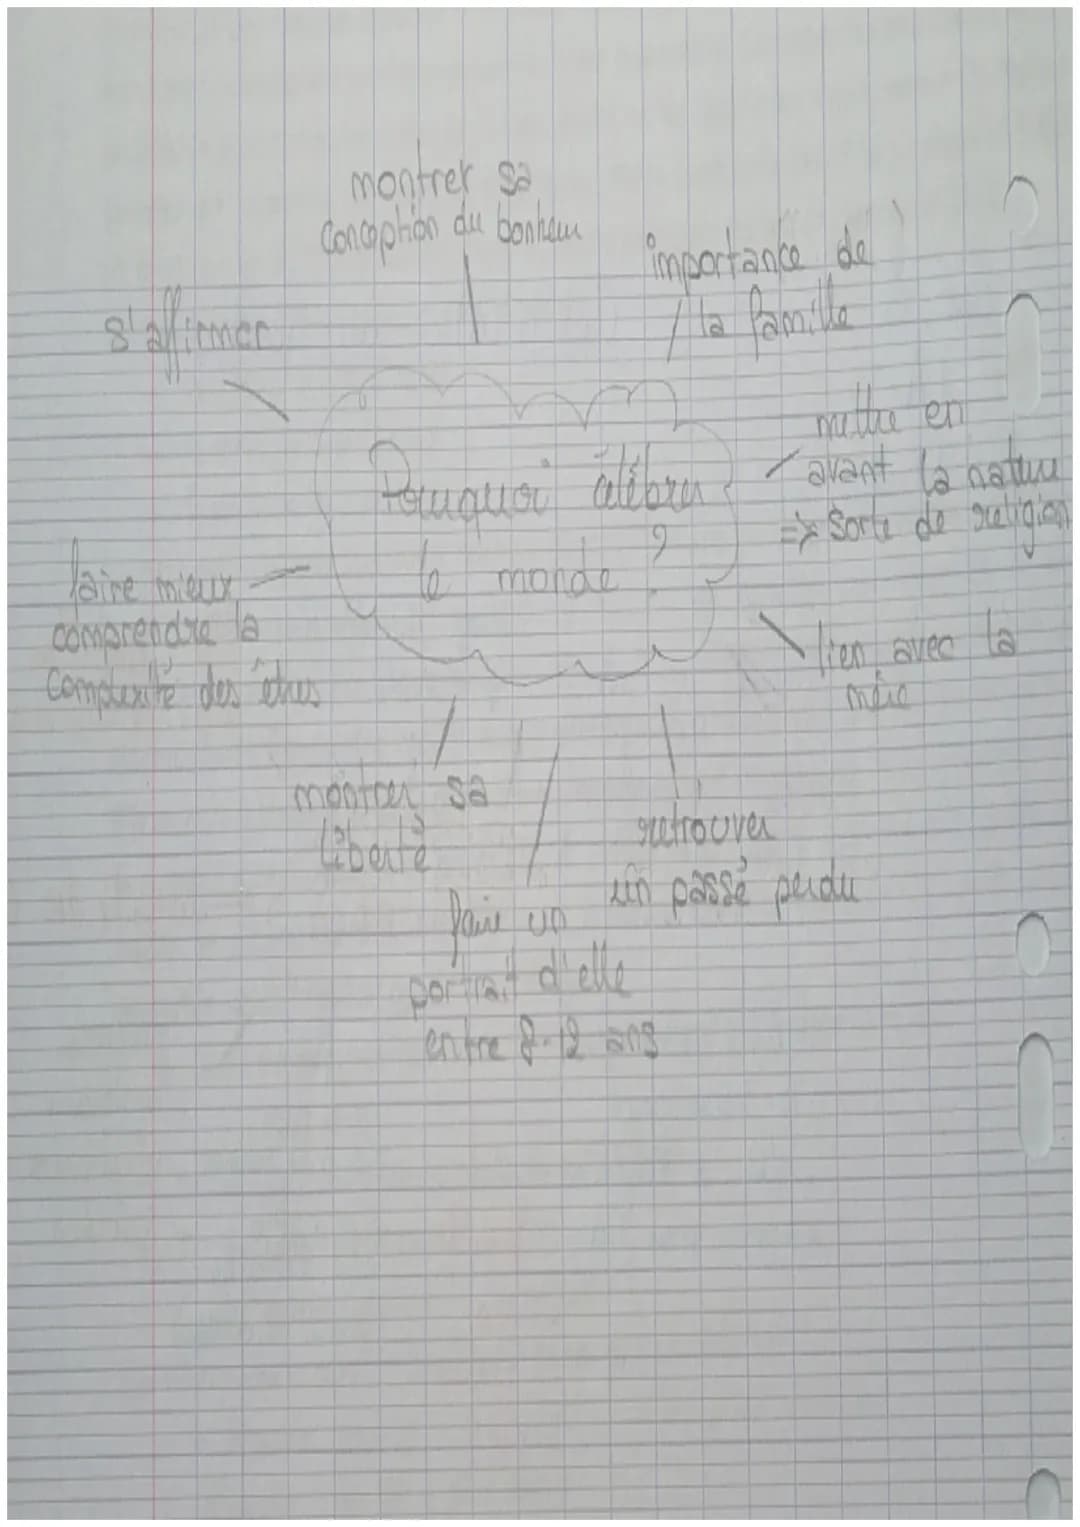 montrer sa
conception du bonheur
importance de
la famille
s'affirmer
mettre en
avant la nature
=> sorte de religion
Pourquoi célébrer
le monde ?
faire mieux
comprendre la
complexité des êtres
lien avec la
mère
montrer sa
liberté
retrouver
un passé perdu
faire un
portrait d'elle
entre 8-12 ans